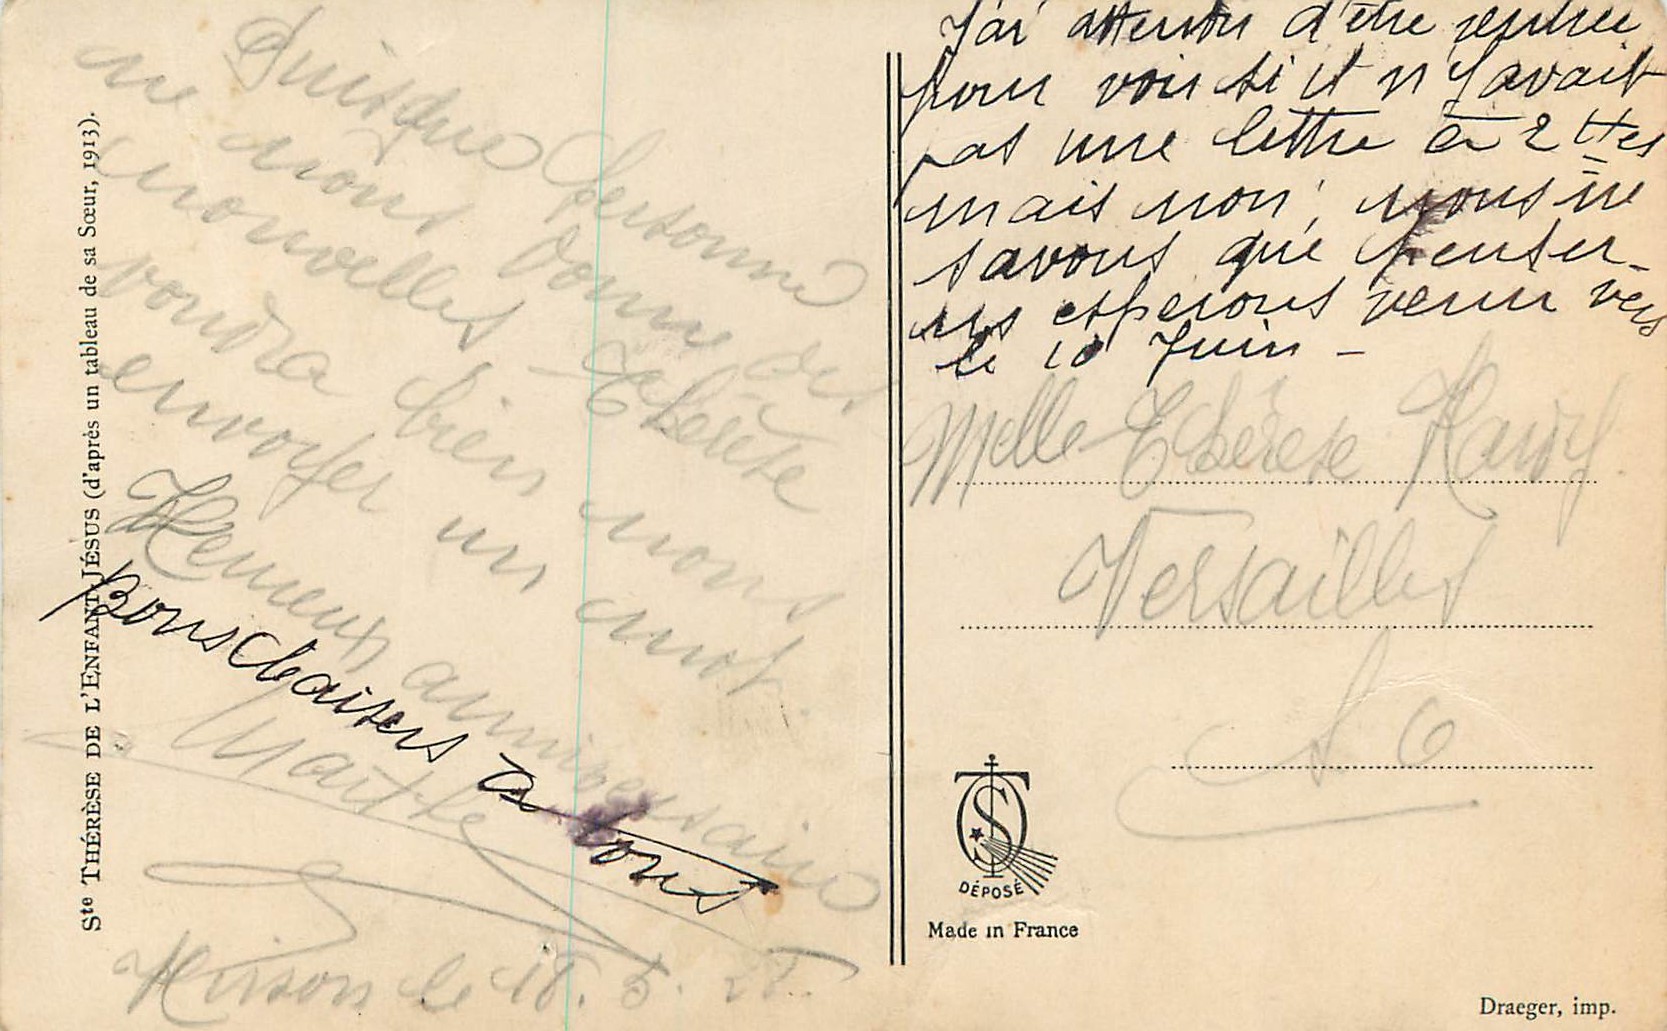 Puisque personne
ne nous donne des
nouvelles Thérèse
voudra bien nous
envoyer un mot.
Heureux anniversaire
Bons baisers à tous
Hirson le 18. 5. 28.
Ste THÉRÈSE DE L'ENFANT JÉSUS (d'après un tableau de sa Sœur, 1913).
J'ai attendu d'être rentrée
pour voir si il n'y avait
pas une lettre à 2 htes
mais non, nous ne
savons que penser -
ns esperons venir vers
le 10 Juin -
Melle Thérèse
Versailles
S O
TSO
DÉPOSÉ
Made in France
Draeger, imp.